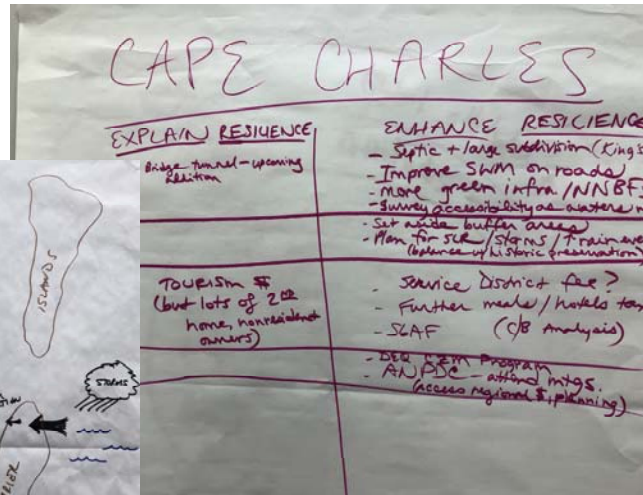 CAPE CHARLES
EXPLAIN RESILIENCE
Bridge tunnel - upcoming
addition
TOURISM $
(but lots of 2nd
home, nonresident
owners)
ENHANCE RESILIENCE
- Septic + large subdivision (Kings
- Improve SWM on roads
- more green infra/NNBFs
- Survey accessibility as waters
- Set aside buffer areas
- Plan for SLR/storms/
(balance w/ historic preservation)
- Service District fee?
- Further meals/hotels tax
- SLAF (C/B Analysis)
- DEQ CZM Program
- ANPDC - attend mtgs.
(access regional $, planning)
ISLANDS
STORMS